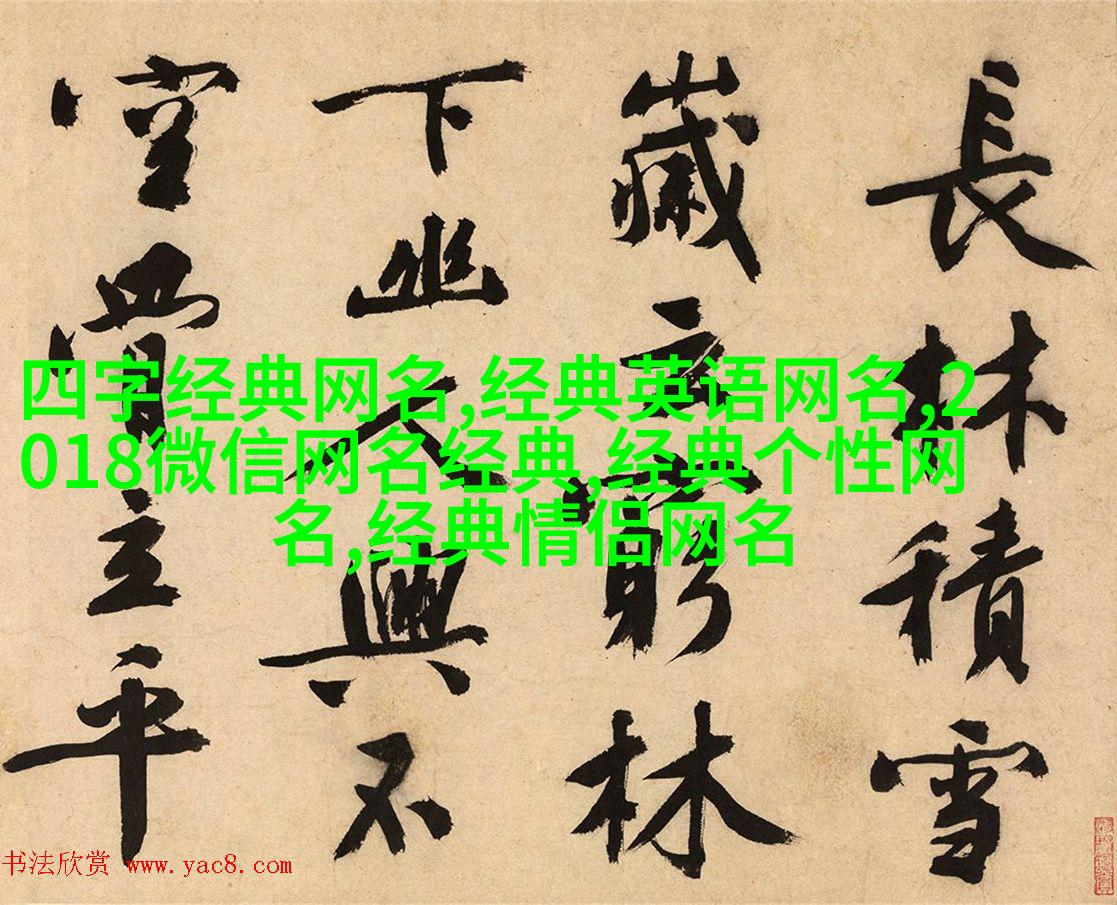 長林積雪
歲云窮林
下幽人興不
空立平
四字经典网名,经典英语网名,2
018微信网名经典,经典个性网
名,经典情侣网名
书法欣赏 www.yac8.com